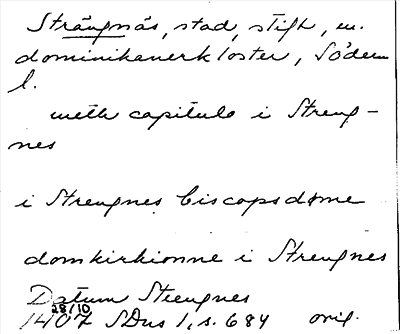 Strängnäs, stad, stift, m.
dominikanerkloster, Söderm
l.
meth capitulo i Streng-
nes
i Strengnes biscopsdøme
domkirkionne i Strengnes
Datum Strengnes
28/10
1407 SDns 1, s. 684 orig.